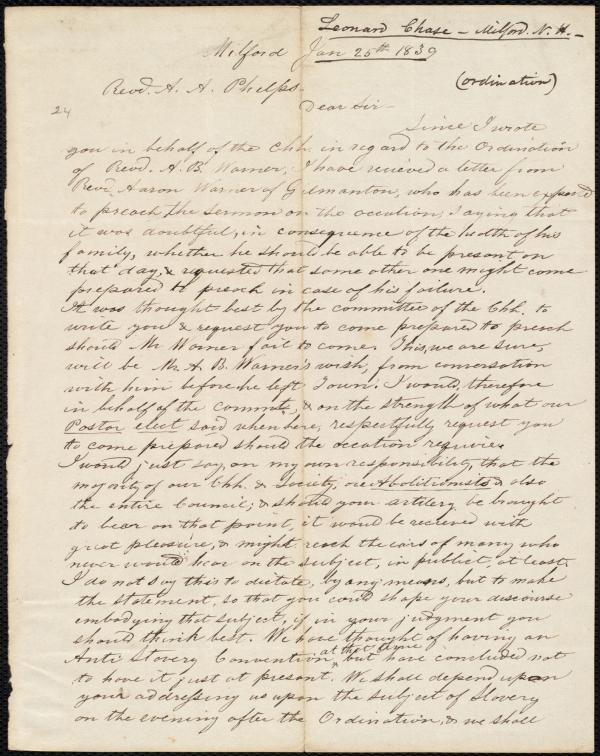 Leonard Chase - Milford. N. H. -
Milford Jan 25th 1839
(ordination)
Revd. A. A. Phelps -
24
Dear Sir -
Since I wrote
you in behalf of the Chh. in regard to the Ordination
of Revd. A. B. Warner, I have recieved a letter from
Revd Aaron Warner of Gilmanton, who has been expected
to preach the sermon on the occation, saying that
it was doubtful, in consequence of the health of his
family, whether he should be able to be present on
that day, & requested that some other one might come
prepared to preach in case of his failure.
It was thought best by the committee of the Chh. to
write you & request you to come prepared to preach
should Mr Warner fail to come. This, we are sure,
will be Mr. A. B. Warner's wish, from conversation
with him before he left Town. I would, therefore
in behalf of the committ, & on the strength of what our
Pastor elect said when here, respectfully request you
to come prepared should the occation require.
I would just say, on my own responsibility, that the
majority of our Chh. & Society, are Abolitionists & also
the entire Council; & should your artilery be brought
to bear on that point, it would be recieved with
great pleasure, & might reach the ears of many who
never would hear on the subject, in publict, at least.
I do not say this to dictate, by any means, but to make
the statement, so that you could shape your discourse
embodying that subject, if in your judgment you
should think best. We have thought of having an
at that time
Anti Slavery Convention, but have concluded not
to have it just at present. We shall depend upon
your addressing us upon the subject of Slavery
on the evening after the Ordination, & we shall